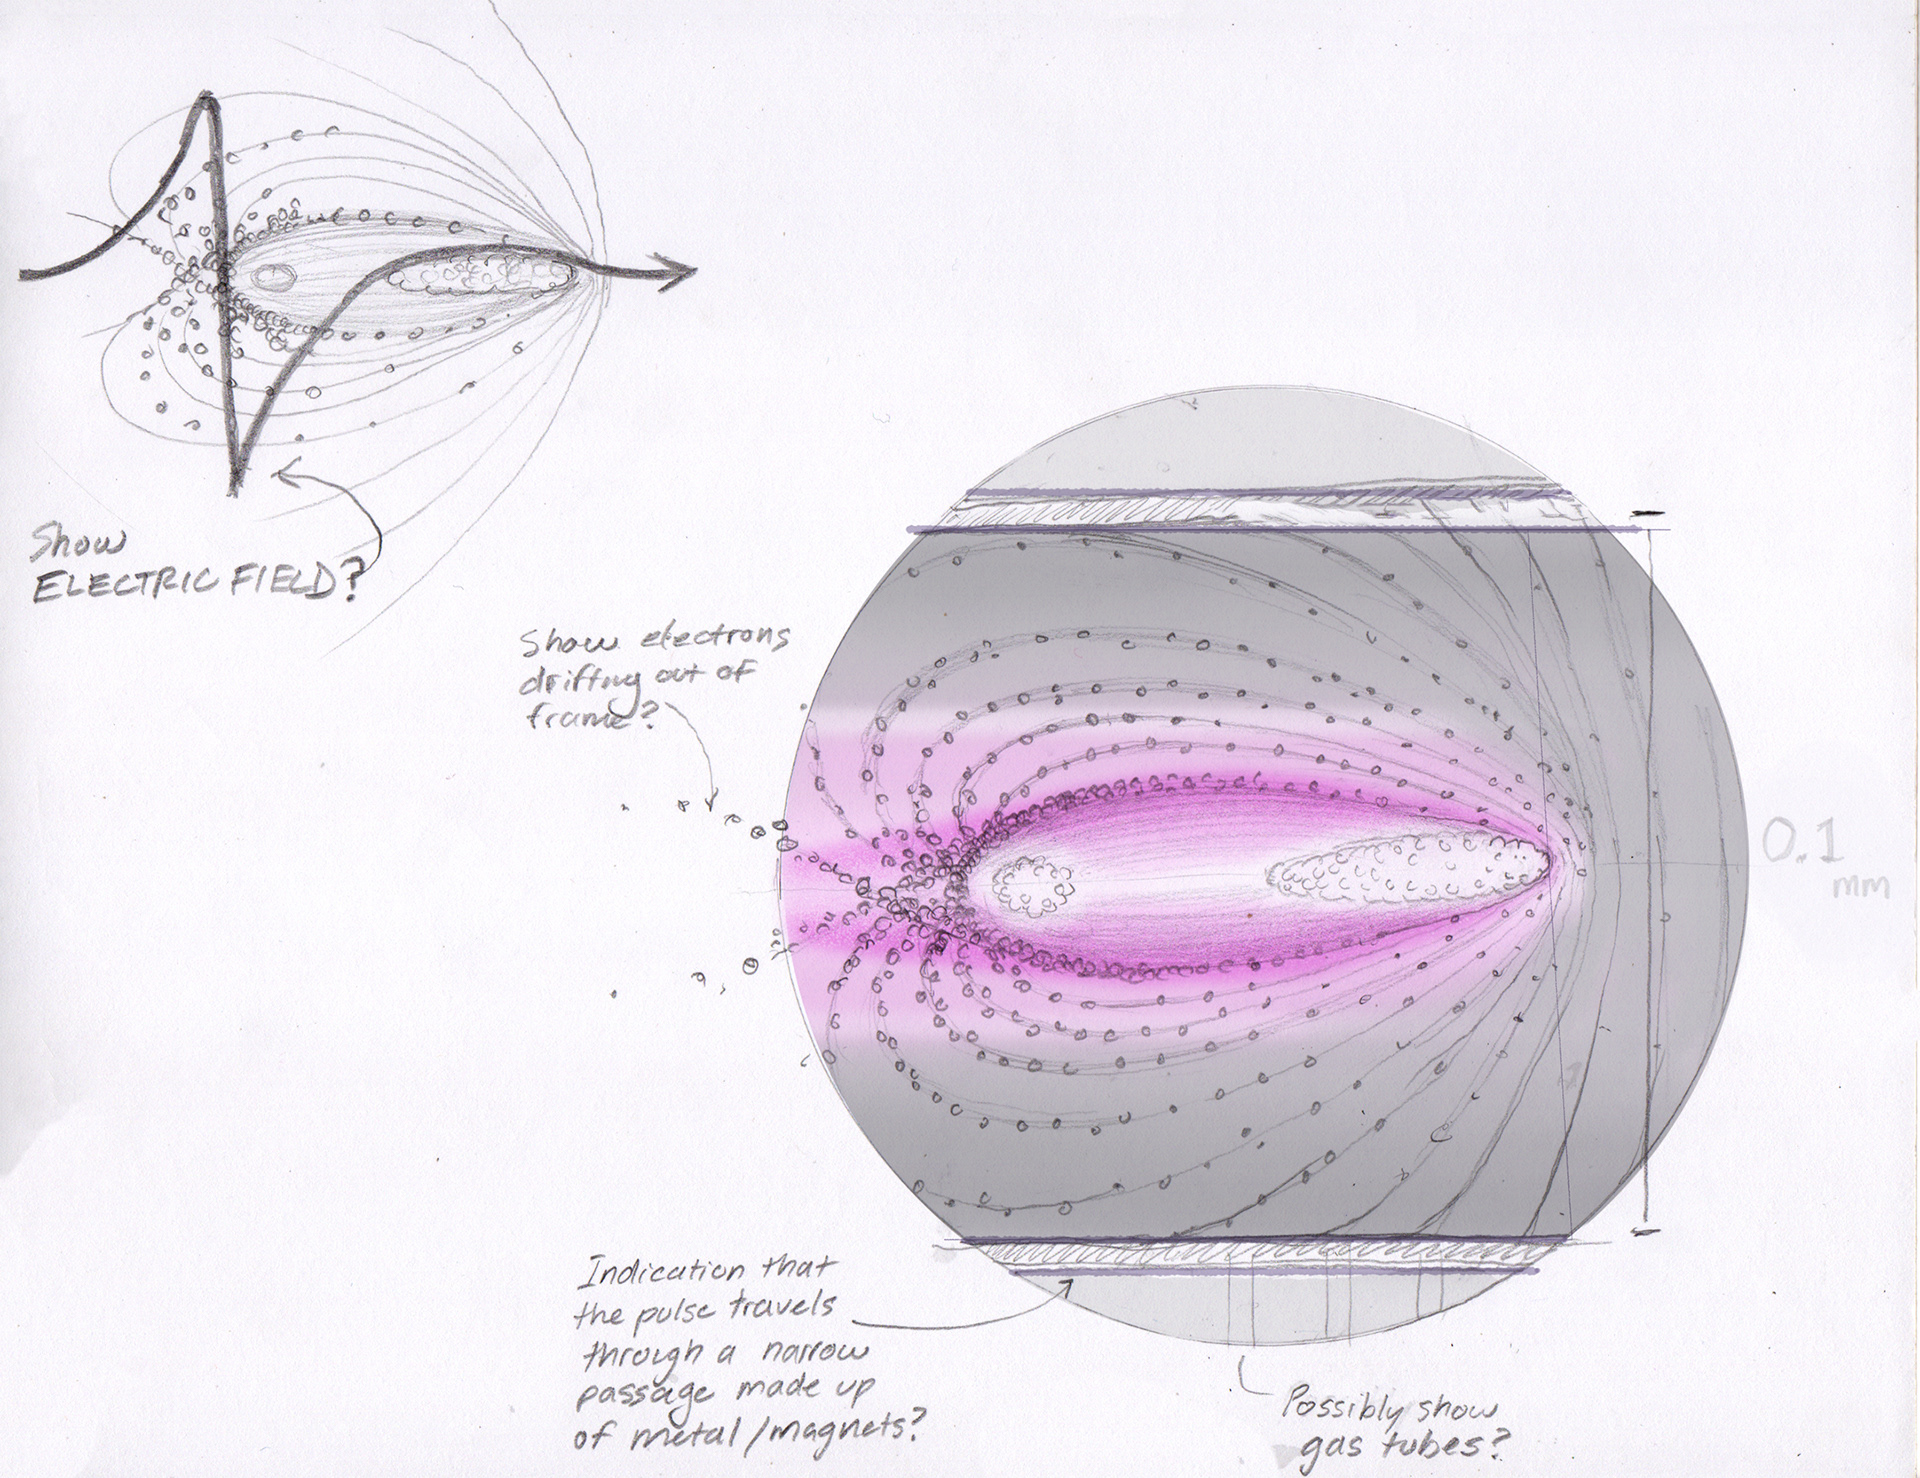 Show
ELECTRIC FIELD?
Show electrons
drifting out of
frame?
0.1
mm
Indication that
the pulse travels
through a narrow
passage made up
of metal/magnets?
Possibly show
gas tubes?